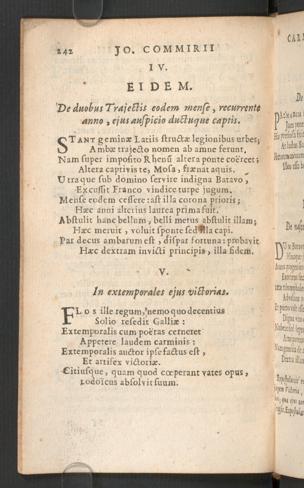 242 JO. COMMIRII
IV.
EIDEM.
De duobus Trajectis eodem mense, recurrente
anno, ejus auspicio ductuque captis.
STANT geminæ Latiis structæ legionibus urbes;
Ambæ trajecto nomen ab amne ferunt.
Nam super imposito Rhenū altera ponte coërcet;
Altera captivis te, Mosa, frænat aquis.
Utraque sub domino servire indigna Batavo,
Excussit Franco vindice turpe jugum.
Mense eodem cessere: ast illa corona prioris;
Hæc anni alterius laurea prima fuit.
Abstulit hanc bellum, belli metus abstulit illam;
Hæc meruit, voluit sponte sed illa capi.
Par decus ambarum est, dispar fortuna: probavit
Hæc dextram invicti principis, illa fidem.
V.
In extemporales ejus victorias.
FLOS ille regum, nemo quo decentius
Solio resedit Galliæ:
Extemporalis cum poëtas cerneret
Appetere laudem carminis:
Extemporalis auctor ipse factus est,
Et artifex victoriæ.
Citiusque, quam quod cœperant vates opus,
Lodoicus absolvit suum.